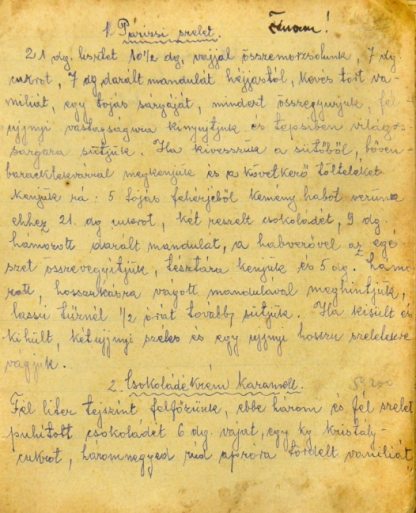 1. Párizsi szelet. Finom!
21 dg. lisztet 10 1/2 dg. vajjal összemorzsolunk, 7 dg
cukrot, 7 dg darált mandulát héjjastól, kevés tört va-
níliát, egy tojás sárgáját, mindezt összegyurjuk, fél
ujjnyi vastagságura kinyujtjuk és tepsiben világos
sárgára sütjük. Ha kivesszük a sütőből, bőven
baracklekvárral megkenjük és a következő tölteléket
kenjük rá: 5 tojás fehérjéből kemény habot verünk
ehhez 21 dg cukrot, két reszelt csokoládét, 9 dg.
hámozott darált mandulát, a habverővel az egé
szet összevegyítjük, tésztára kenjük és 5 dg. hámo
zott, hosszukásra vágott mandulával meghintjük,
lassú tűznél 1/2 órát tovább sütjük. Ha kisült és
kihült, kétujjnyi széles és egy ujjnyi hosszu szeletekre
vágjuk.
2. Csokoládékrém karamell.
Fél liter tejszint felfőzünk, ebbe három és fél szelet
puhított csokoládét 6 dg. vajat, egy kg kristály-
cukrot, háromnegyed rúd apróra tördelt vaníliát